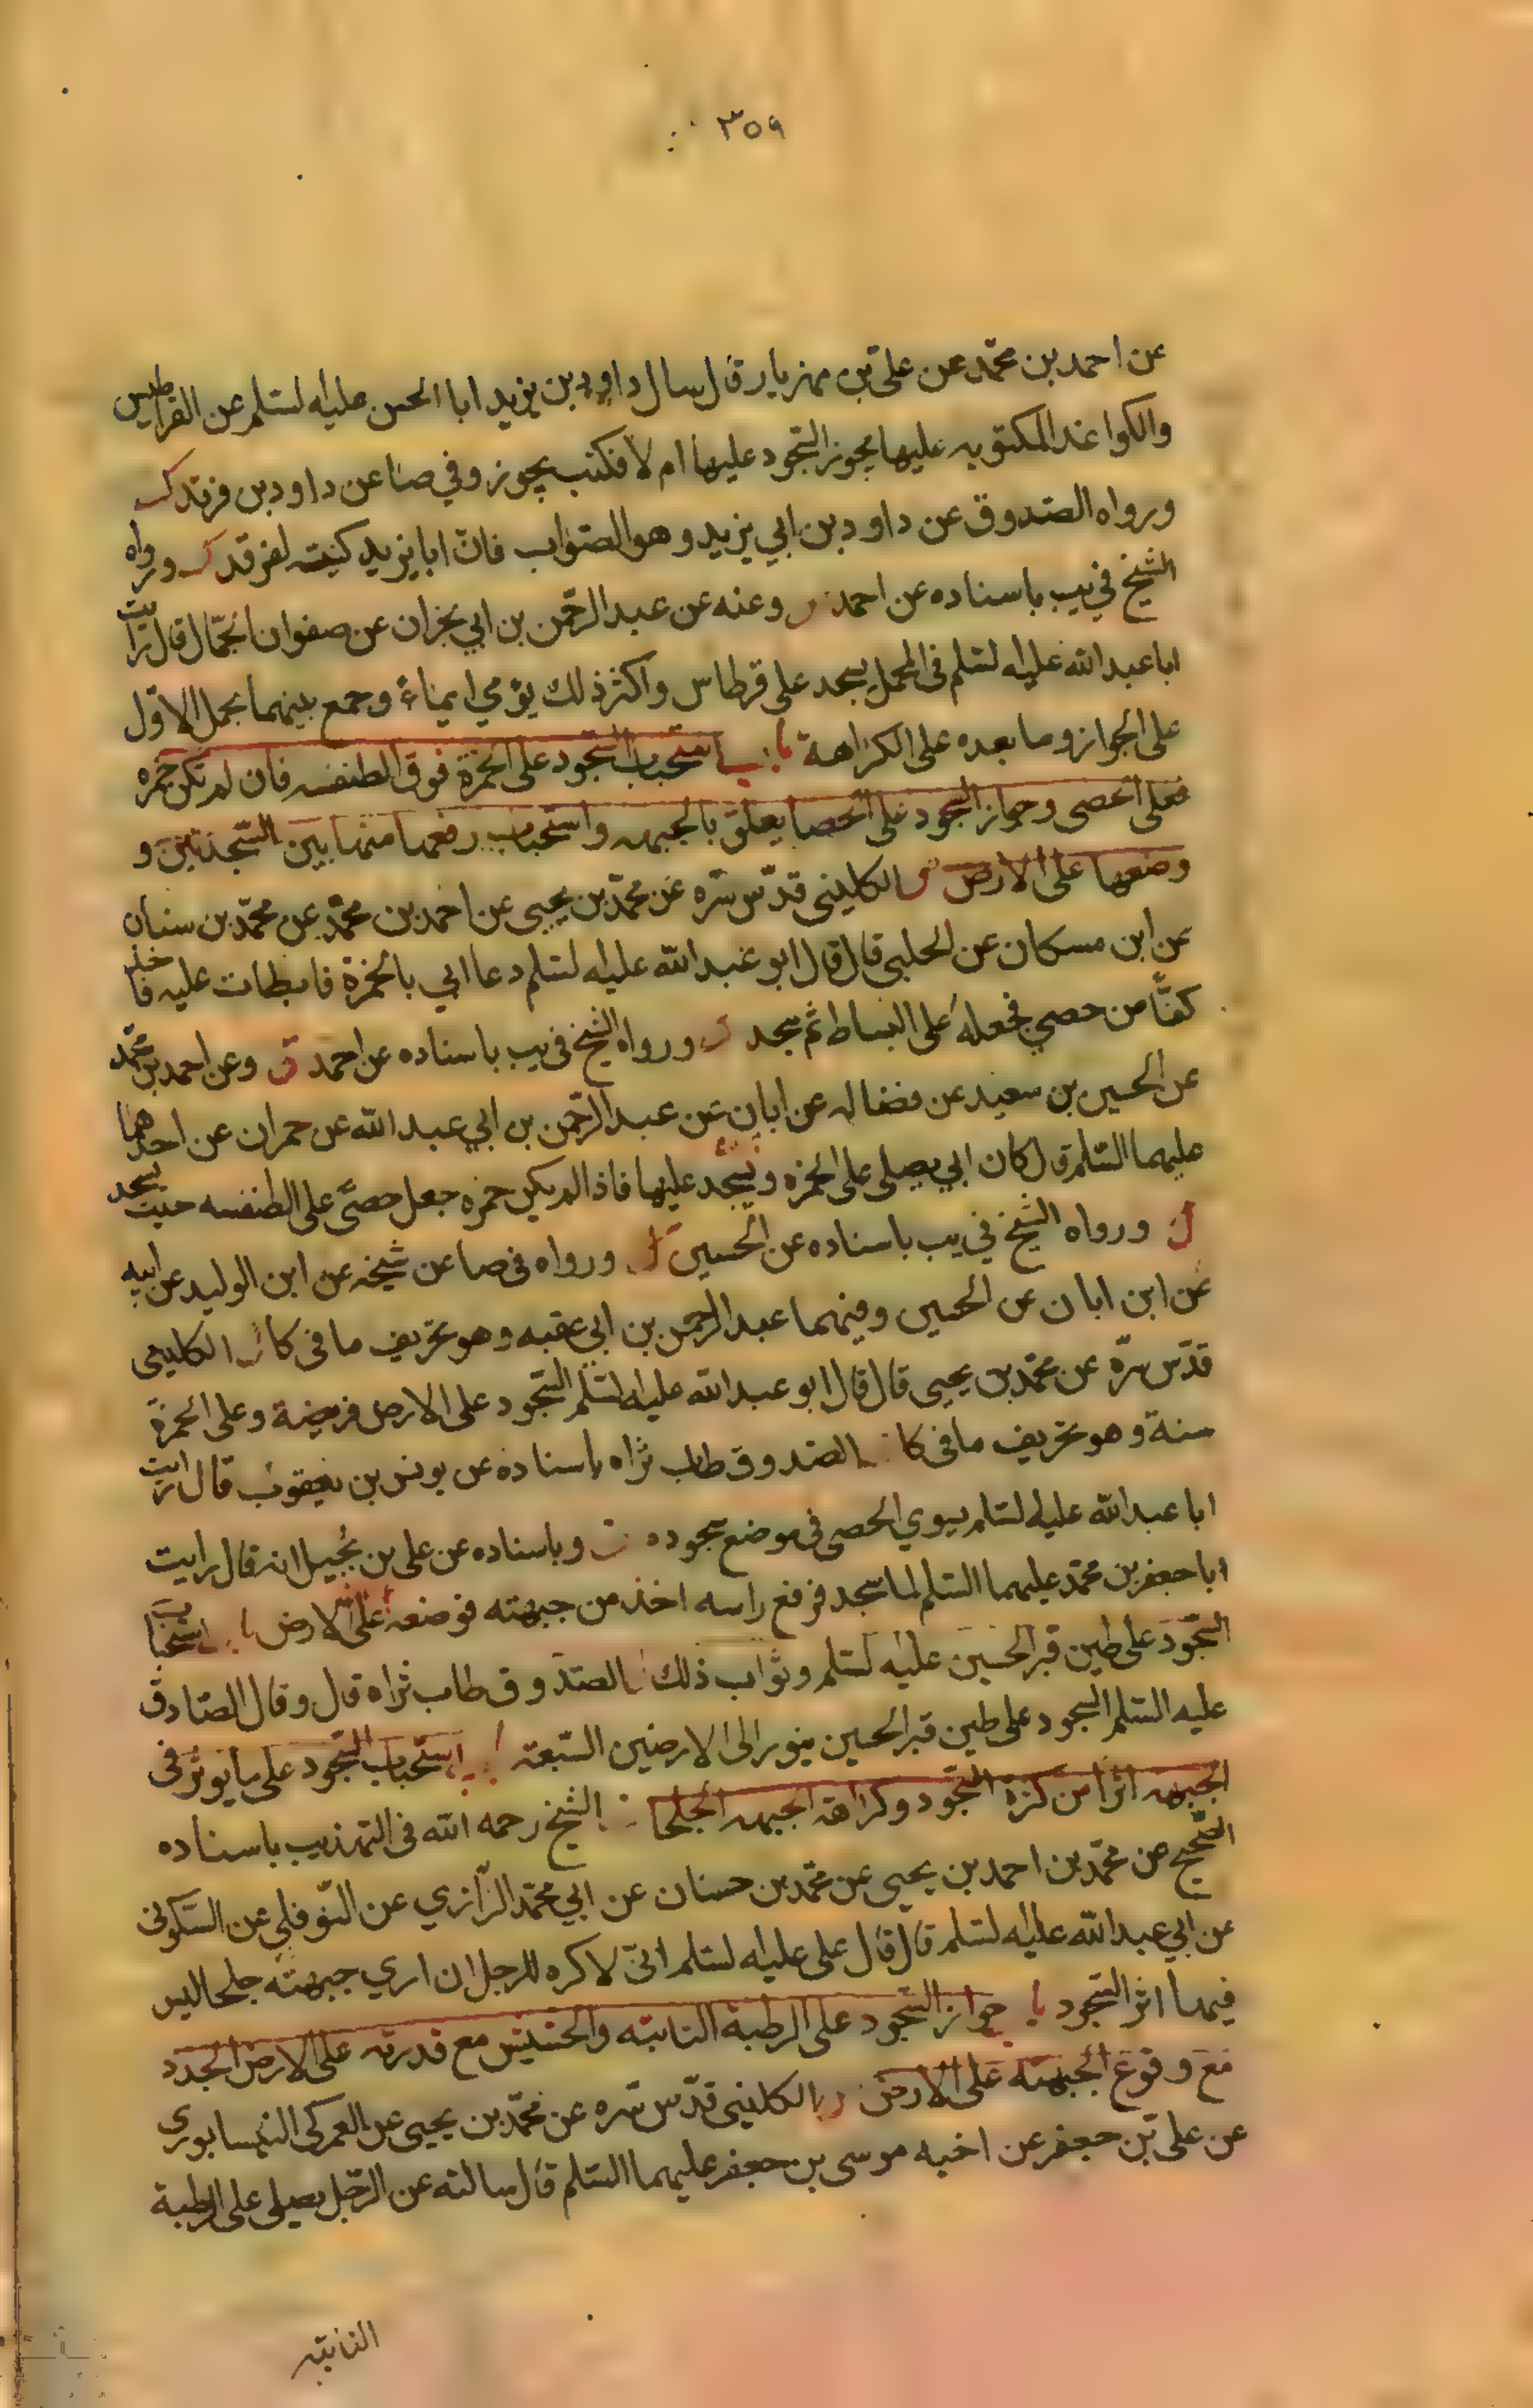 ٣٥٩
عن احمد بن محمّد عن علىّ بن مهزيار قال سال داود بن يزيد ابا الحسن عليه السلم عن القراطيس
والكواغذ المكتوبه عليها يجوز السّجود عليها ام لا فكتب يجوز وفي صا عن داود بن فرقد
ورواه الصّدوق عن داود بن ابي يزيد وهو الصّواب فانّ ابا يزيد كنيته لفرقد ورواه
الشيخ في يب باسناده عن احمد وعنه عن عبد الرّحمن بن ابي نجران عن صفوان الجمّال قال رايت
ابا عبد الله عليه السلم فى المحمل يسجد على قرطاس واكثر ذلك يؤمي ايماءً وجمع بينهما بحمل الاوّل
على الجواز وما بعده على الكراهة باب استحباب السّجود على الخمرة فوق الطنفسه فان لم تكن خمره
فعلى الحصى وجواز السجود على الحصا يعلق بالجبهه واستحباب رفعها منها بين السّجدتين و
وضعها على الارض الكلينى قدّس سرّه عن محمّد بن يحيى عن احمد بن محمّد عن محمّد بن سنان
عن ابن مسكان عن الحلبي قال قال ابو عبد الله عليه السلم دعا ابي بالخمرة فابطات عليه فاخذ
كفّاً من حصي فجعله على البساط ثم سجد ورواه الشيخ في يب باسناده عن احمد وعن احمد بن محمّد
عن الحسين بن سعيد عن فضاله عن ابان عن عبد الرّحمن بن ابي عبد الله عن حمران عن احدهما
عليهما السّلم قال كان ابي يصلى على الخمره ويسجد عليها فاذا لم يكن خمره جعل حصىً على الطنفسه حيث يسجد
ورواه الشيخ في يب باسناده عن الحسين ورواه فى صا عن شيخه عن ابن الوليد عن ابيه
عن ابن ابان عن الحسين وفيهما عبد الرحمن بن ابي عقبه وهو تحريف ما فى كا الكلينى
قدّس سرّه عن محمّد بن يحيى قال قال ابو عبد الله عليه السلم السّجود على الارض فريضة وعلى الخمرة
سنة وهو تحريف ما فى كا الصّدوق طاب ثراه باسناده عن يونس بن يعقوب قال رايت
ابا عبد الله عليه السلم يسوي الحصى فى موضع سجوده وباسناده عن على بن بجيل انه قال رايت
ابا جعفر بن محمّد عليهما السّلم لما سجد فرفع راسه اخذ من جبهته فوضعه على الارض باب استحباب
السّجود على طين قبر الحسين عليه السلم وثواب ذلك الصّدوق طاب ثراه قال وقال الصّادق
عليه السّلم السجود على طين قبر الحسين ينور الى الارضين السّبعه باب استحباب السّجود على ما يؤثر فى
الجبهه اثرا من كثرة السّجود وكراهة الجبهه الجلحا الشيخ رحمه الله فى التهذيب باسناده
الصّحيح عن محمّد بن احمد بن يحيى عن محمّد بن حسان عن ابي محمّد الرّازي عن النّوفلي عن السّكونى
عن ابي عبد الله عليه السلم قال قال على عليه السلم انىّ لاكره للرجل ان اري جبهته جلحا ليس
فيها اثر السّجود باب جواز السّجود على الرطبة النابته والحشيش مع قدرته على الارض الجدد
مع وقوع الجبهته على الارض الكلينى قدّس سّره عن محمّد بن يحيى عن العمركى النيسابورى
عن علىّ بن جعفر عن اخيه موسى بن جعفر عليهما السّلم قال سالته عن الرّجل يصلى على الرطبة
النابته